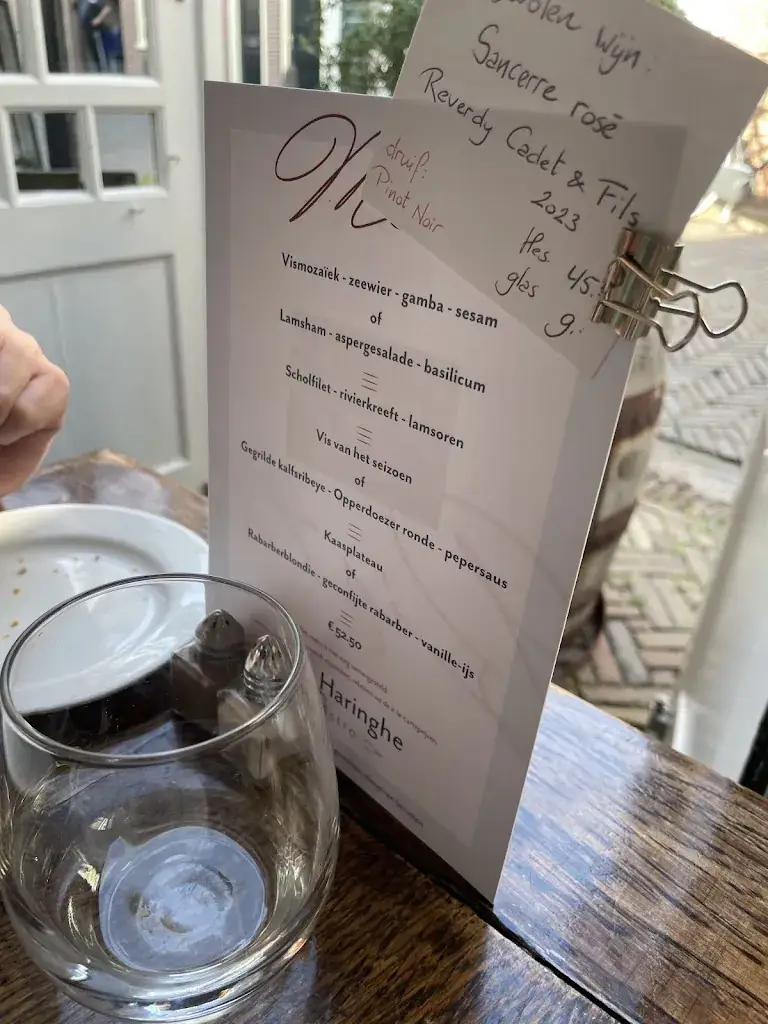 Wijn:
Sancerre rosé
Reverdy Cadet & Fils
2023
fles 45.-
glas 9.-
druif:
Pinot Noir
Vismozaïek - zeewier - gamba - sesam
of
Lamsham - aspergesalade - basilicum
Scholfilet - rivierkreeft - lamsoren
Vis van het seizoen
of
Gegrilde kalfsribeye - Opperdoezer ronde - pepersaus
Kaasplateau
of
Rabarberblondie - geconfijte rabarber - vanille-ijs
€52.50
Haringhe